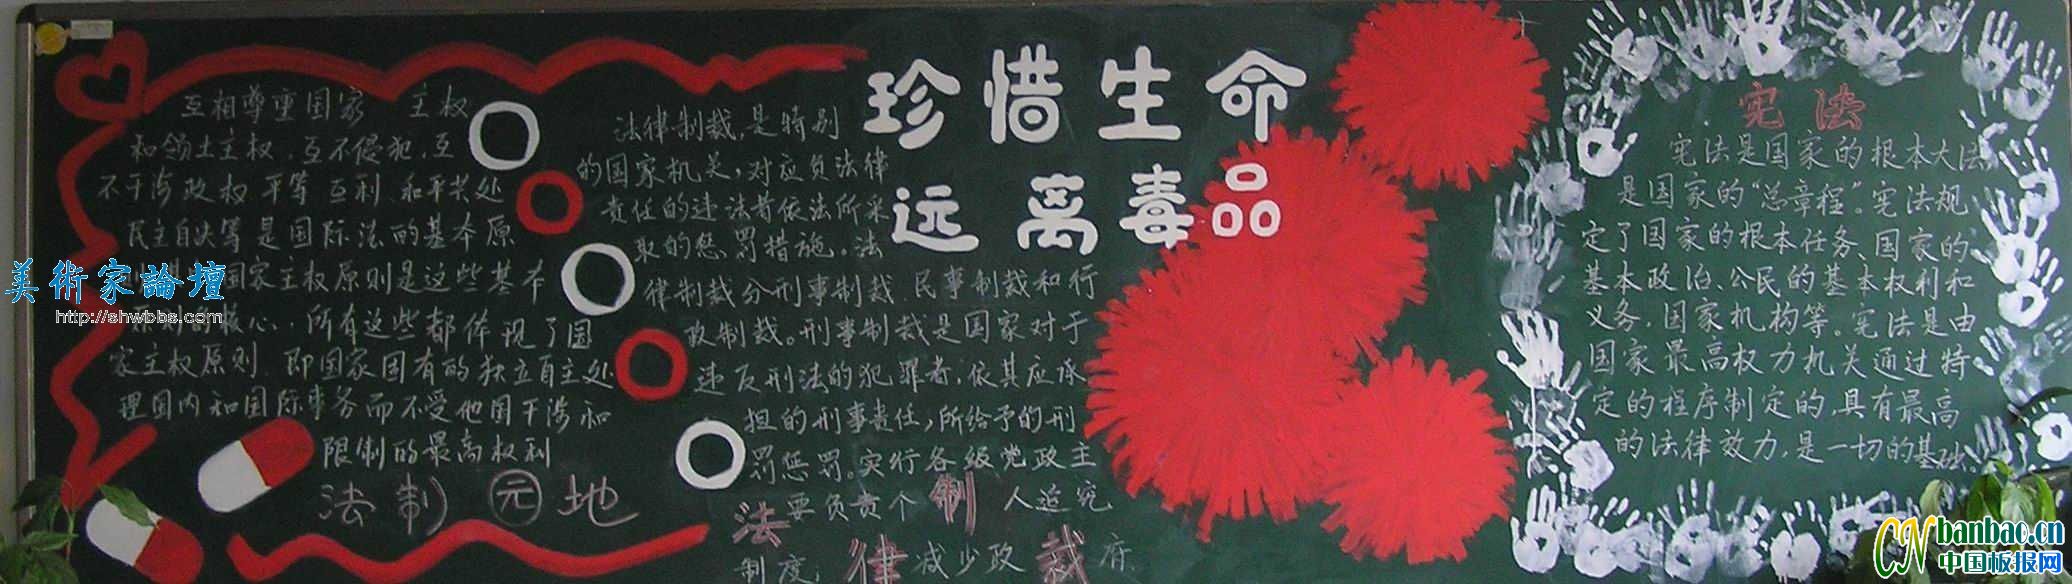 珍惜生命
远离毒品
互相尊重国家 主权
和领土主权,互不侵犯,互
不干涉政权 平等互利、和平共处
民主自决等是国际法的基本原
国家主权原则是这些基本
核心,所有这些都体现了国
家主权原则,即国家固有的独立自主处
理国内和国际事务而不受他国干涉和
限制的最高权利
法制园地
法律制裁,是特别
的国家机关,对应负法律
责任的违法者依法所采
取的惩罚措施。法
律制裁分刑事制裁民事制裁和行
政制裁。刑事制裁是国家对于
违反刑法的犯罪者,依其应承
担的刑事责任,所给予的刑
罚惩罚。实行各级党政主
要负责个人追究
制度; 减少政府
法律制裁
宪法
宪法是国家的根本大法
是国家的“总章程”。宪法规
定了国家的根本任务、国家的
基本政治、公民的基本权利和
义务,国家机构等。宪法是由
国家最高权力机关通过特
定的程序制定的,具有最高
的法律效力,是一切的基础
美術家論壇
http://shwbbs.com
CN banbao.cn
中国板报网